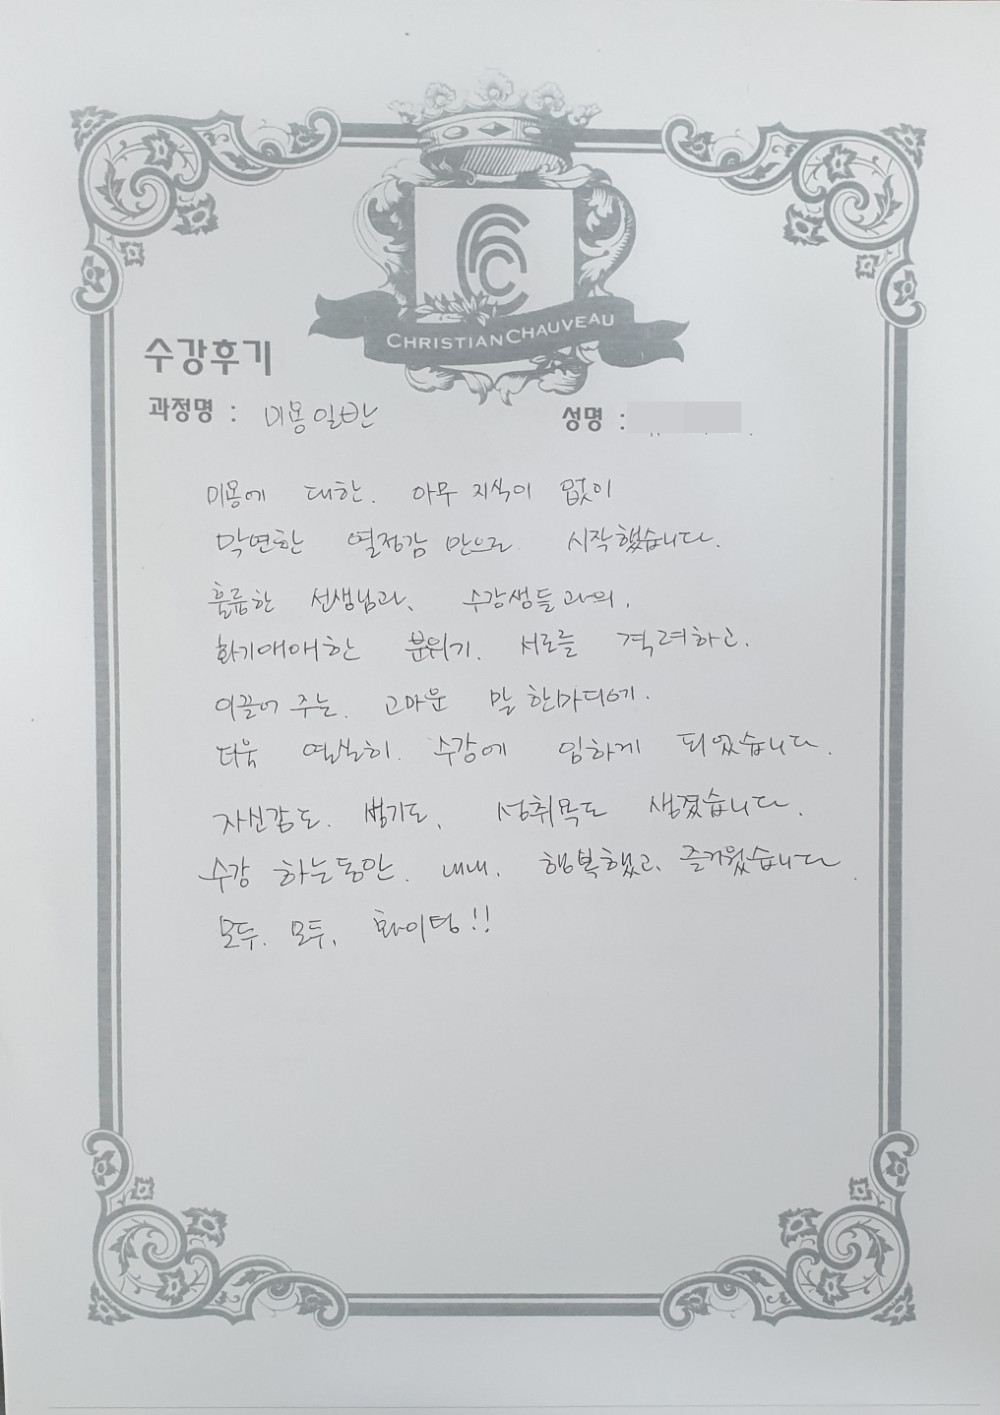 CHRISTIAN CHAUVEAU
수강후기
과정명 : 미용일반 성명 :
미용에 대한. 아무 지식이 없이
막연한 열정감 만으로 시작했습니다.
훌륭한 선생님과, 수강생들과의,
화기애애한 분위기. 서로를 격려하고.
이끌어 주는. 고마운 말 한마디에.
더욱 열심히. 수강에 임하게 되었습니다.
자신감도. 생기도, 성취욕도 생겼습니다.
수강 하는동안. 내내, 행복했고, 즐거웠습니다.
모두. 모두, 화이팅!!